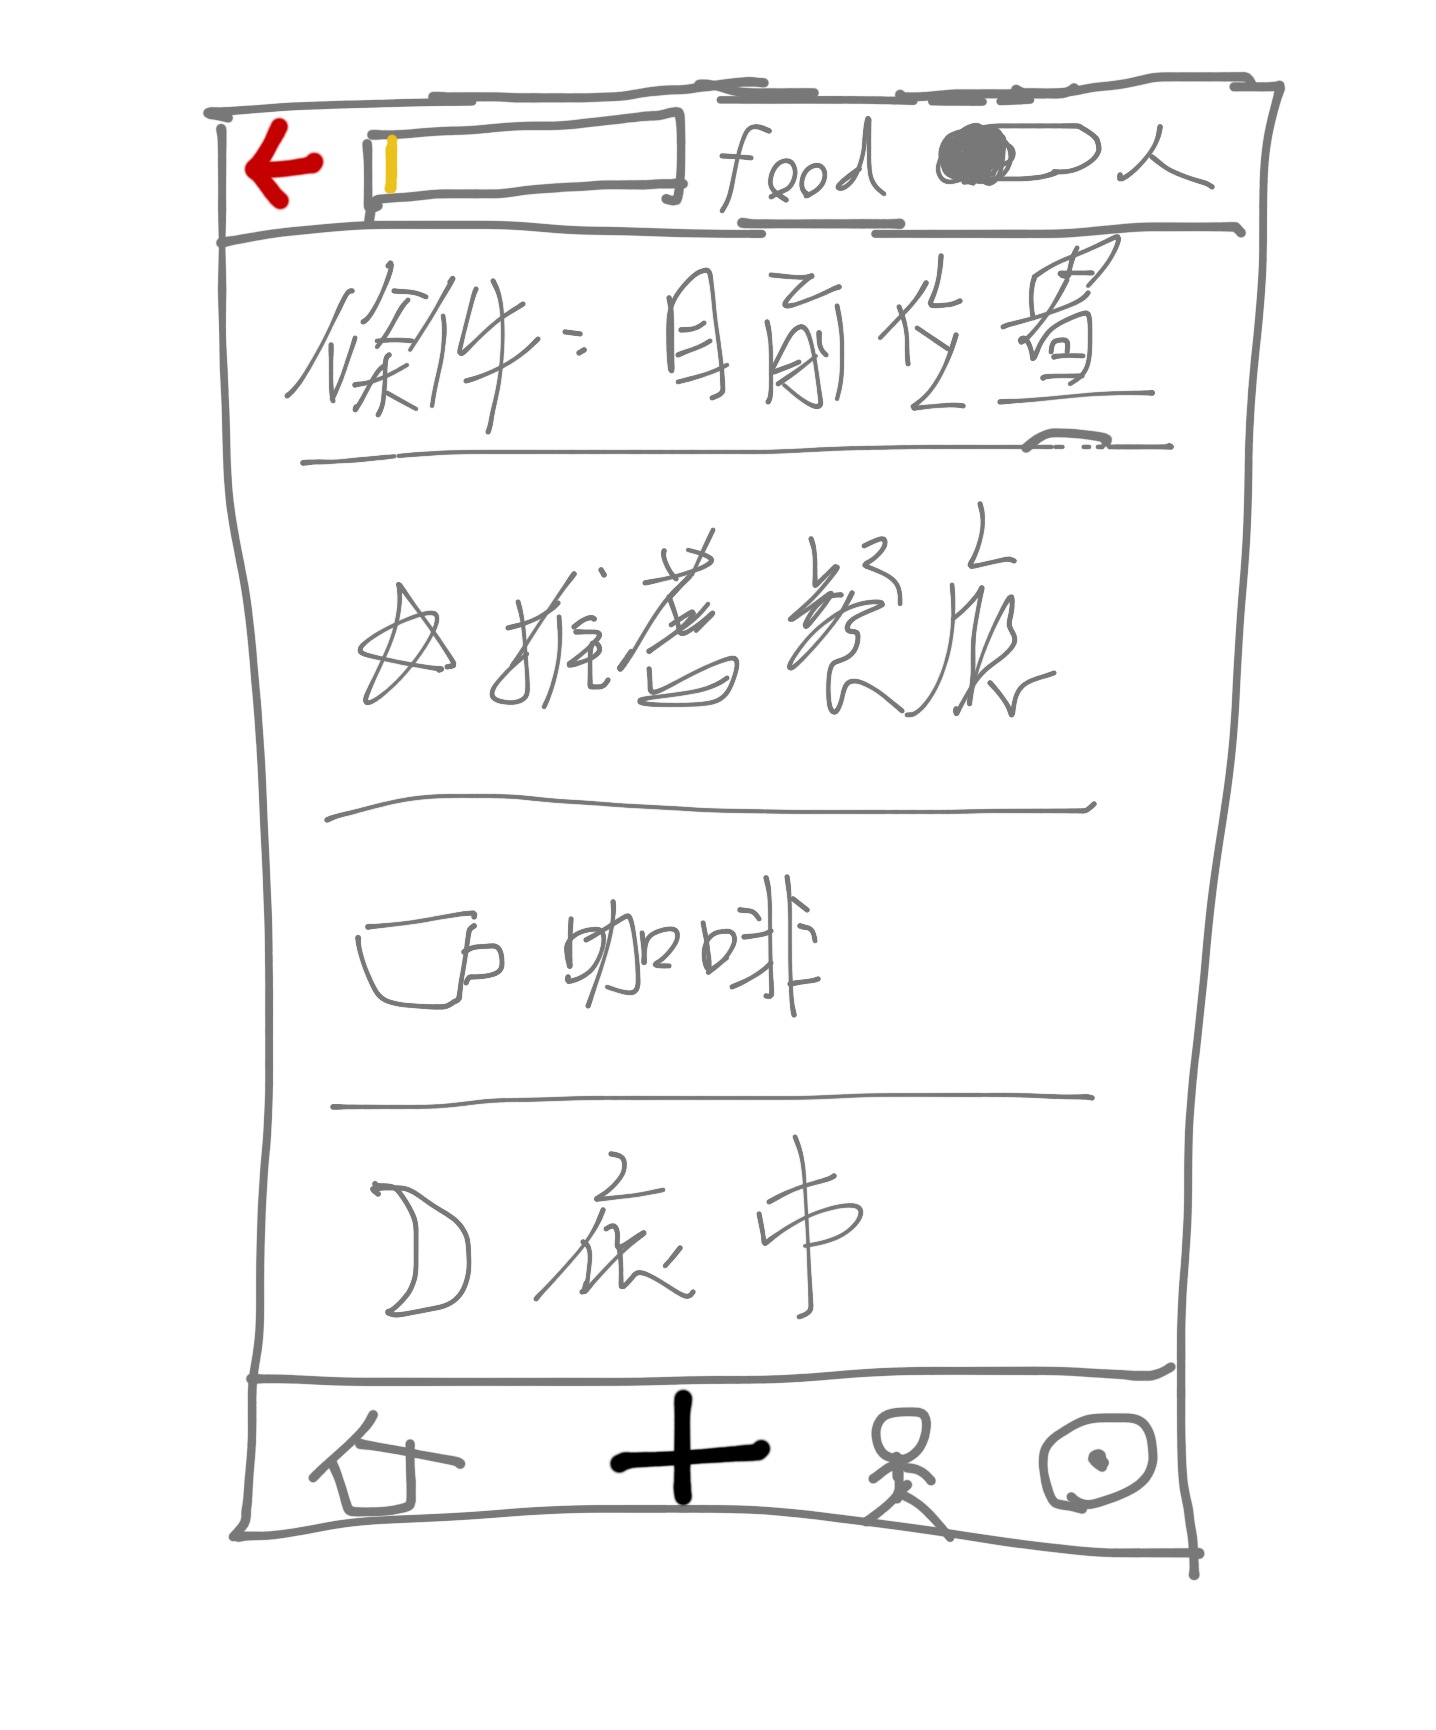 food 人
條件：目前位置
推薦餐廳
咖啡
夜市